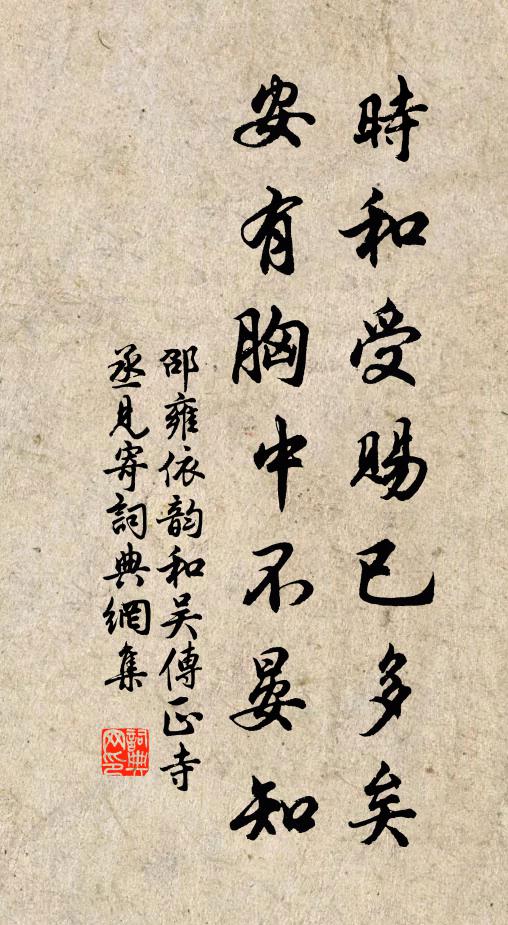 時和受賜已多矣
安有胸中不晏知
邵雍依韵和吴傳正寺
丞見寄詞典網集
詞典
网印